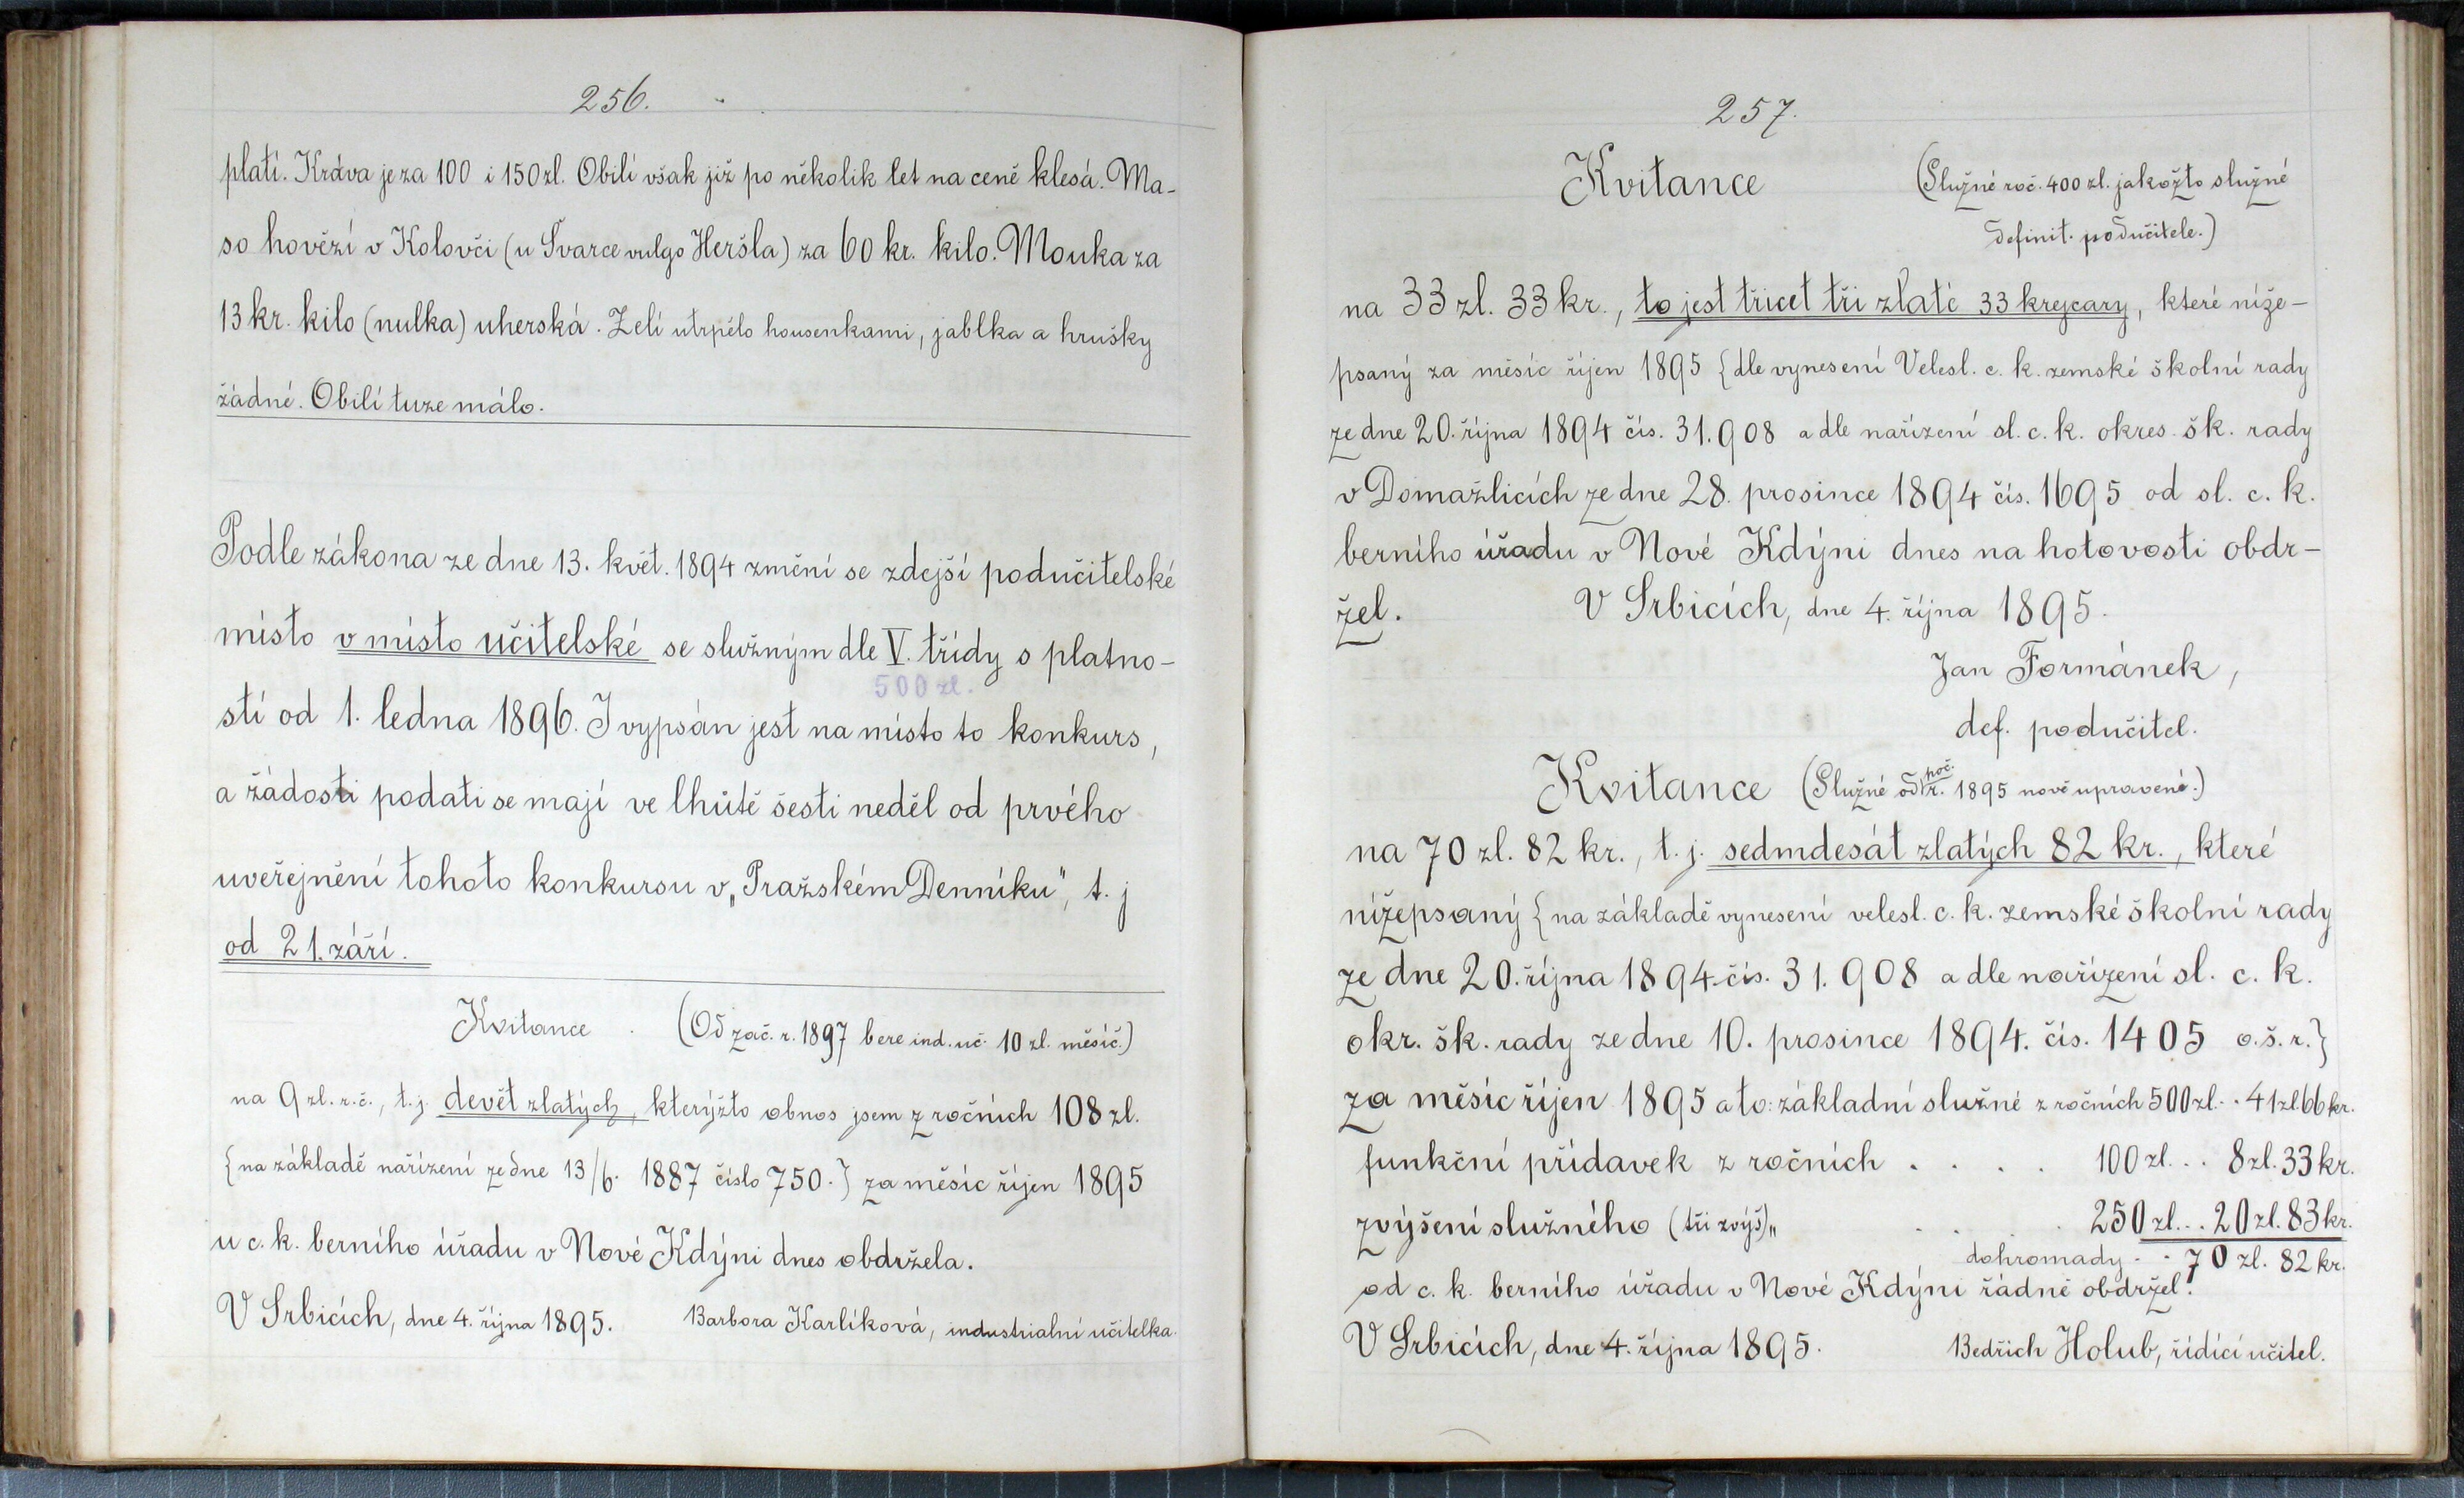 256.
platí. Kráva je za 100 i 150 zl. Obilí však již po několik let na ceně klesá. Ma-
so hovězí v Kolovči (u Švarce vulgo Heršla) za 60 kr. kilo. Mouka za
13 kr. kilo (nulka) uherská. Zelí utrpělo housenkami, jablka a hrušky
žádné. Obilí tuze málo.
Podle zákona ze dne 13. květ. 1894 změní se zdejší podučitelské
místo v místo učitelské se služným dle V. třídy s platno-
500 zl.
stí od 1. ledna 1896. I vypsán jest na místo to konkurs,
a žádosti podati se mají ve lhůtě šesti neděl od prvého
uveřejnění tohoto konkursu v „Pražském Denníku", t. j
od 21. září.
Kvitance . (Od zač. r. 1897 bere ind. uč. 10 zl. měsíč.)
na 9 zl. r. č., t. j. devět zlatých, kterýžto obnos jsem z ročních 108 zl.
{na základě nařízení ze dne 13/6. 1887 číslo 750.} za měsíc říjen 1895
u c. k. berního úřadu v Nové Kdýni dnes obdržela.
V Srbicích, dne 4. října 1895. Barbora Karlíková, industrialní učitelka.
257.
Kvitance (Služné roč. 400 zl. jakožto služné
definit. podučitele.)
na 33 zl. 33 kr., to jest třicet tři zlaté 33 krejcary, které níže-
psaný za měsíc říjen 1895 {dle vynesení Velesl. c. k. zemské školní rady
ze dne 20. října 1894 čís. 31.908 a dle nařízení sl. c. k. okres. šk. rady
v Domažlicích ze dne 28. prosince 1894 čís. 1695 od sl. c. k.
berního úřadu v Nové Kdýni dnes na hotovosti obdr-
žel. V Srbicích, dne 4. října 1895.
Jan Formánek,
def. podučitel.
Kvitance (Služné od poč. r. 1895 nově upravené.)
na 70 zl. 82 kr., t. j. sedmdesát zlatých 82 kr., které
nížepsaný {na základě vynesení velesl. c. k. zemské školní rady
ze dne 20. října 1894 čís. 31.908 a dle nařízení sl. c. k.
okr. šk. rady ze dne 10. prosince 1894. čís. 1405 o. š. r.}
za měsíc říjen 1895 a to: základní služné z ročních 500 zl. . . 41 zl. 66 kr.
funkční přídavek z ročních . . . . 100 zl. . . 8 zl. 33 kr.
zvýšení služného (tři zvýš) „ . . . 250 zl. . . 20 zl. 83 kr.
dohromady . . 70 zl. 82 kr.
od c. k. berního úřadu v Nové Kdýni řádně obdržel.
V Srbicích, dne 4. října 1895. Bedřich Holub, řídící učitel.